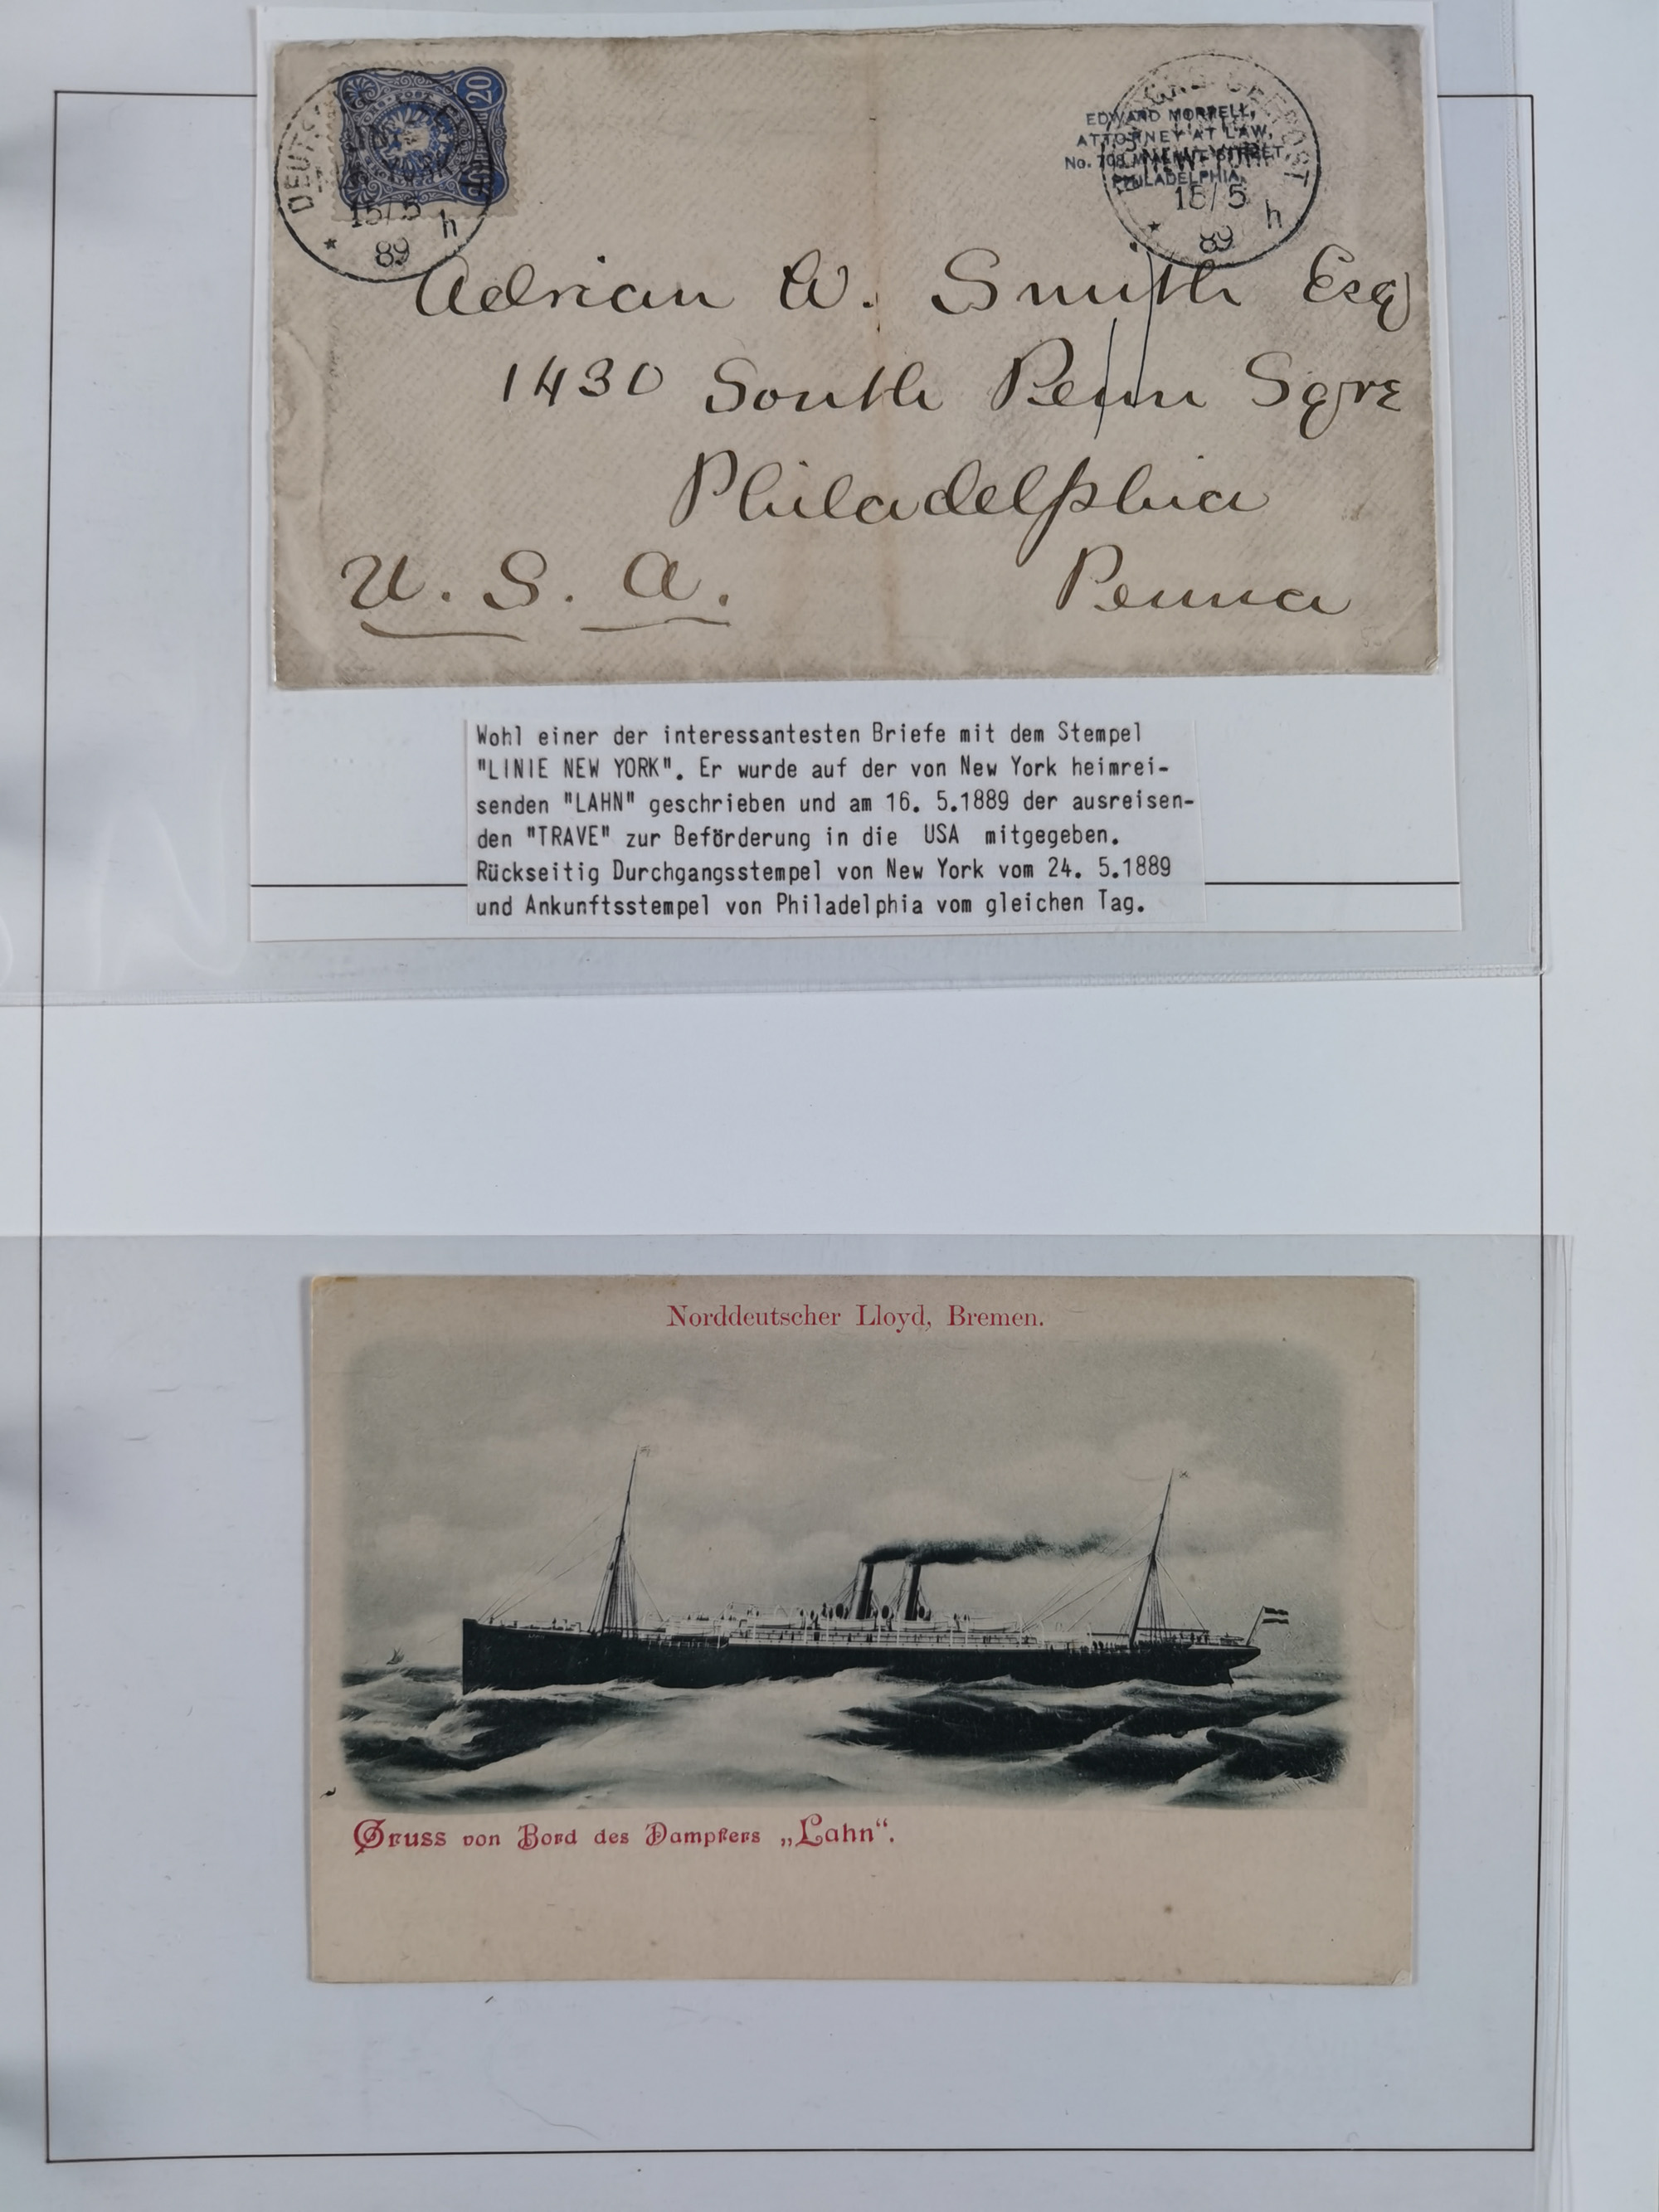 20
DEUTSCHE
15/5
h
89
SEEPOST
EDWARD MORRELL,
ATTORNEY AT LAW,
No. 708 WALNUT STREET
PHILADELPHIA.
15/5
h
89
Adrian W. Smith Esq
1430 South Penn Sqre
Philadelphia
U. S. A. Penna
Wohl einer der interessantesten Briefe mit dem Stempel
"LINIE NEW YORK". Er wurde auf der von New York heimrei-
senden "LAHN" geschrieben und am 16. 5.1889 der ausreisen-
den "TRAVE" zur Beförderung in die USA mitgegeben.
Rückseitig Durchgangsstempel von New York vom 24. 5.1889
und Ankunftsstempel von Philadelphia vom gleichen Tag.
Norddeutscher Lloyd, Bremen.
Gruss von Bord des Dampfers „Lahn“.